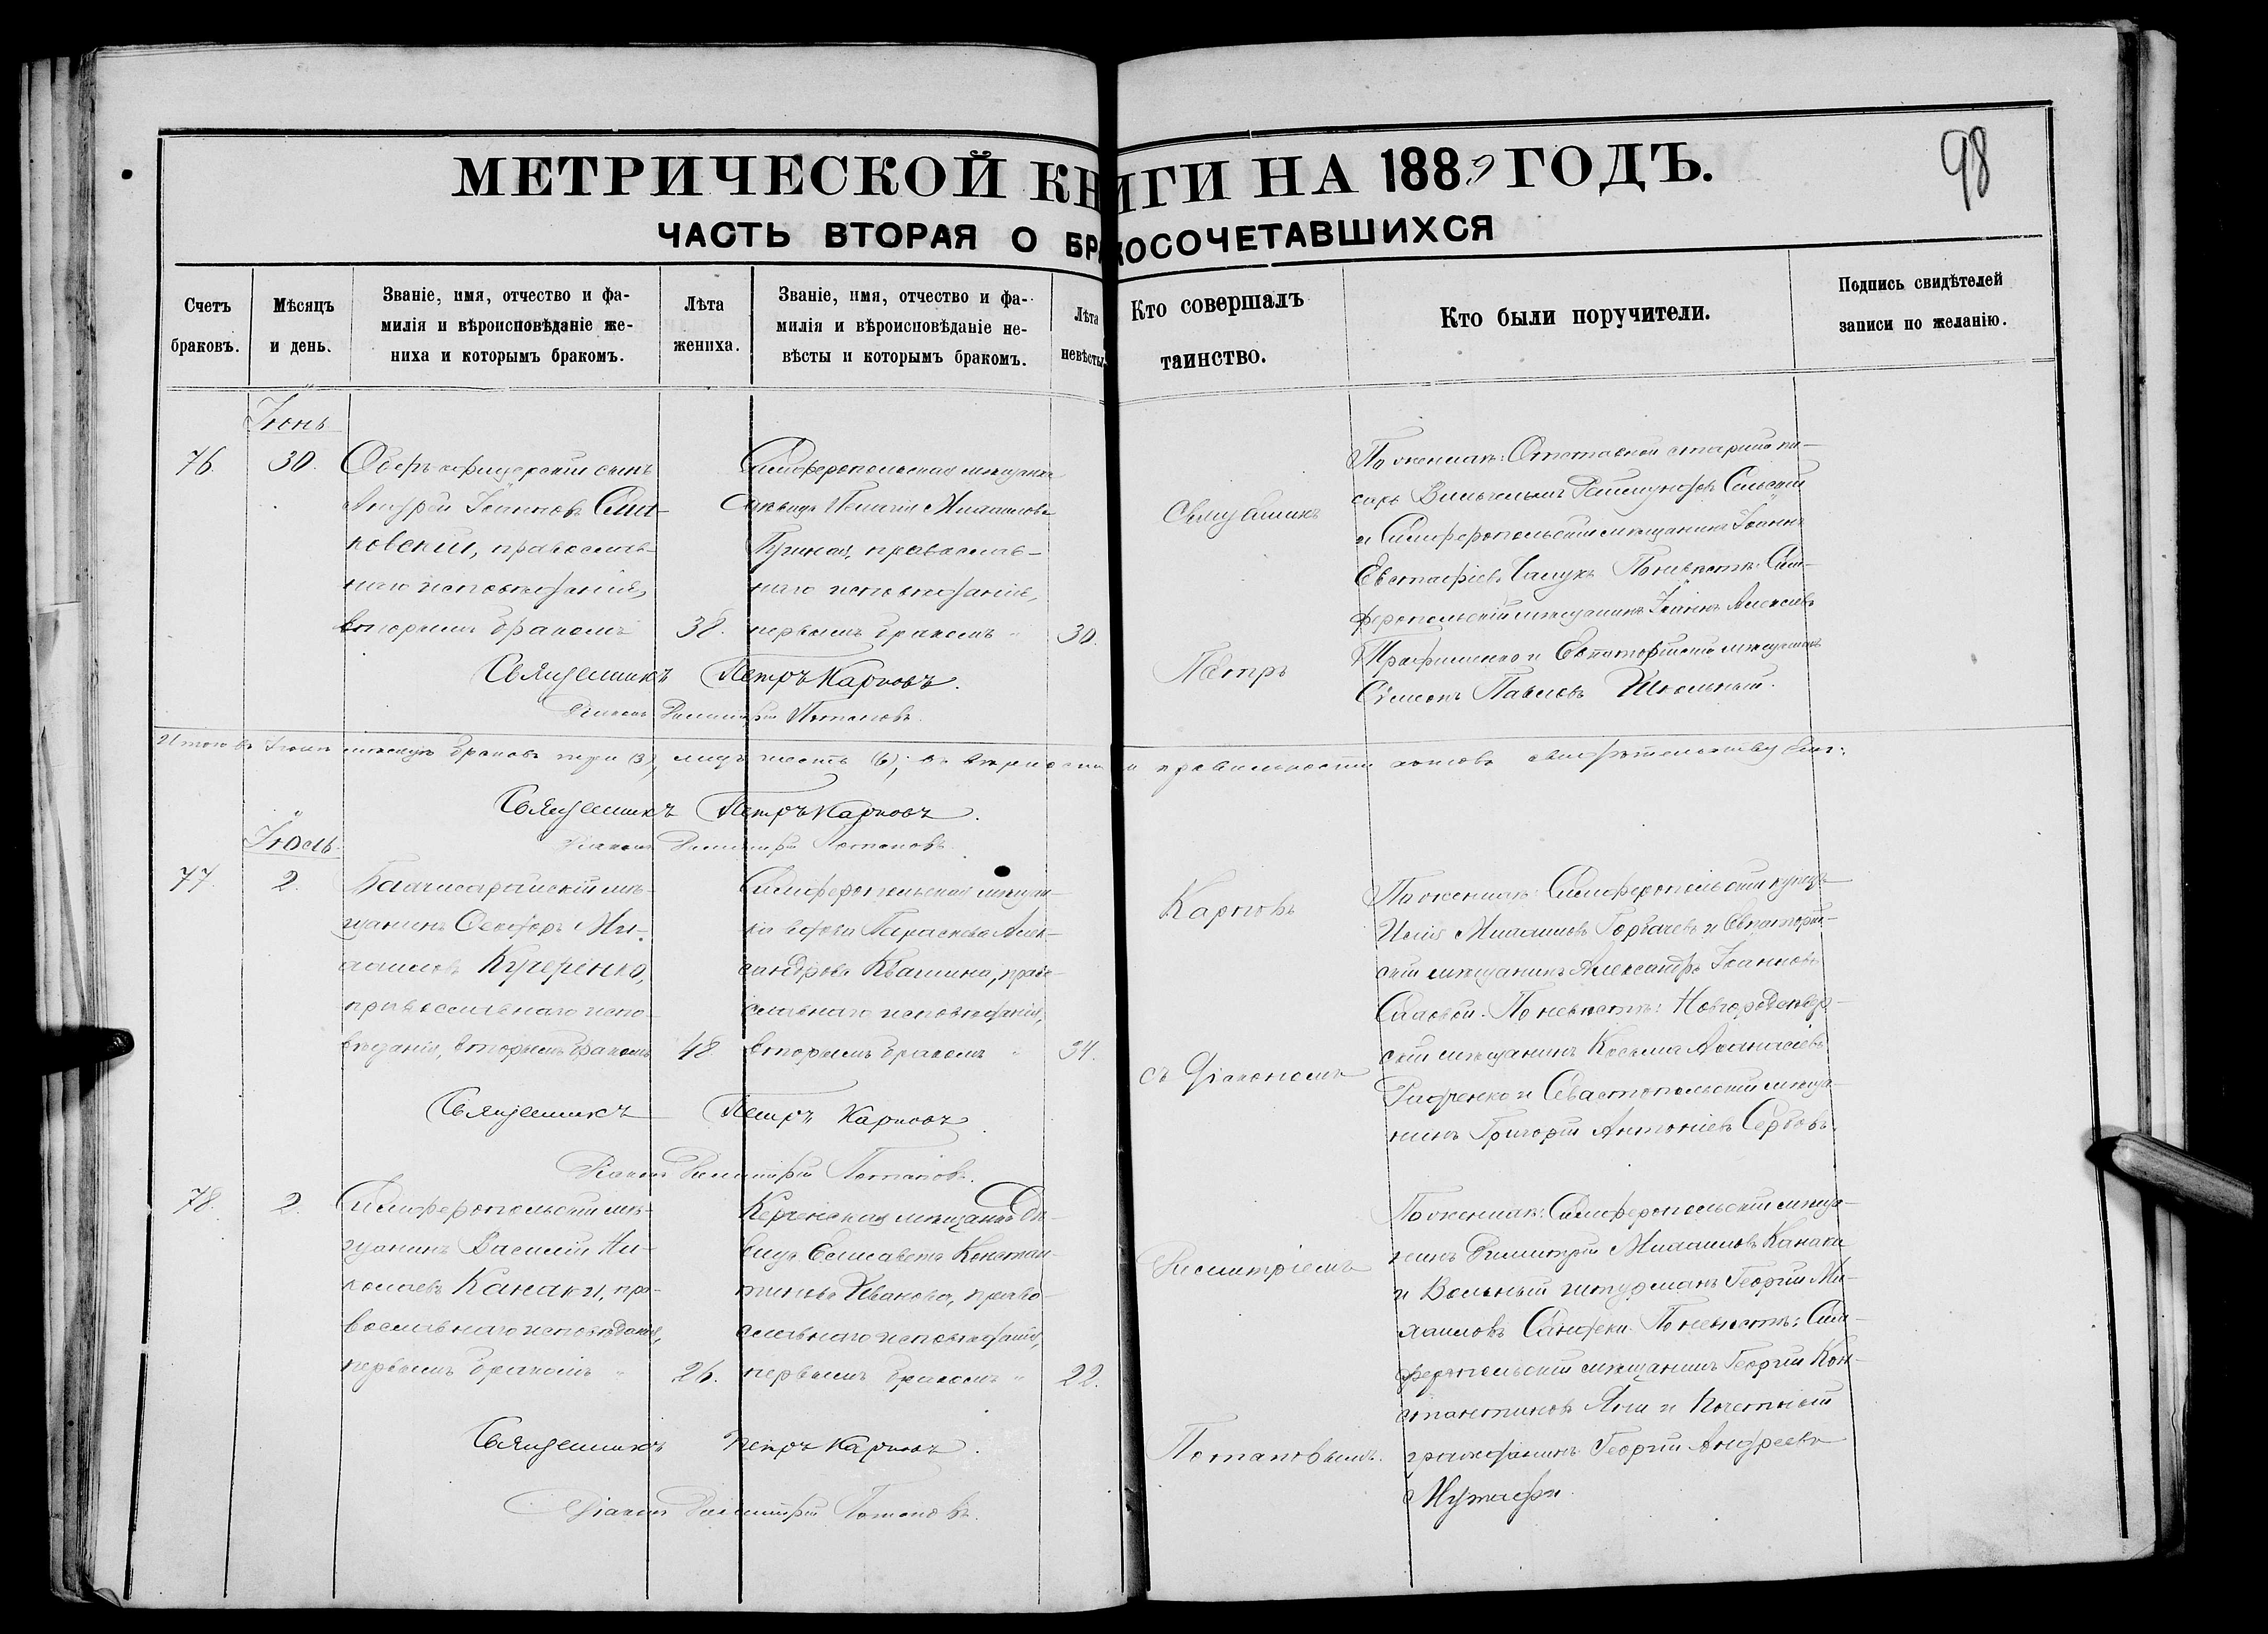 МЕТРИЧЕСКОЙ КНИГИ НА 1889 ГОДЪ.
98
ЧАСТЬ ВТОРАЯ О БРАКОСОЧЕТАВШИХСЯ
Счетъ браковъ.
Мѣсяцъ и день.
Званіе, имя, отчество и фа-
милія и вѣроисповѣданіе же-
ниха и которымъ бракомъ.
Лѣта жениха.
Званіе, имя, отчество и фа-
милія и вѣроисповѣданіе не-
вѣсты и которымъ бракомъ.
Лѣта невѣсты.
Кто совершалъ таинство.
Кто были поручители.
Подпись свидѣтелей
записи по желанію.
Іюнь
76.
30.
Оберъ-офицерскій сынъ
Андрей Іоанновъ Сма-
ковскій, православ-
наго исповѣданія,
вторымъ бракомъ
38.
Симферопольская мѣщанка
дѣвица Михаилова
православ-
наго исповѣданія,
первымъ бракомъ
30.
Священникъ
Петръ
По женихѣ: Отставной старшій пи-
сарь
и Симферопольскій мѣщанинъ Іоаннъ
Евстафіевъ По невѣстѣ: Сим-
феропольскій мѣщанинъ Іоаннъ Алексіевъ
Трофименко и Евпаторійскій мѣщанинъ
Симеонъ Павловъ Школьный.
Священникъ Петръ Карповъ.
Діаконъ Димитрій Потаповъ.
Итого въ Іюнѣ мѣсяцѣ браковъ три (3), лицъ шесть (6); въ вѣрности и правильности актовъ свидѣтельствуемъ:
Священникъ Петръ Карповъ.
Діаконъ Димитрій Потаповъ.
Іюль
77.
2.
Бахчисарайскій мѣ-
щанинъ Ѳеодоръ Ми-
хаиловъ Кучеренко,
православнаго испо-
вѣданія, вторымъ бракомъ
48
Симферопольская мѣщан-
ка вдова Параскева Алек-
сандрова Квашина, право-
славнаго исповѣданія,
вторымъ бракомъ
34.
Карповъ
съ Діакономъ
По женихѣ: Симферопольскій купецъ
Илія Михаиловъ Горбачевъ и Евпаторій-
скій мѣщанинъ Александръ Іоанновъ
Садовой. По невѣстѣ: Новгородсѣвер-
скій мѣщанинъ Косьма Аѳанасіевъ
и Севастопольскій мѣща-
нинъ Григорій Антоніевъ Сербовъ.
Священникъ Петръ Карповъ.
Діаконъ Димитрій Потаповъ.
78.
2.
Симферопольскій мѣ-
щанинъ Василій Ни-
колаевъ Канаки, пра-
вославнаго исповѣданія,
первымъ бракомъ
26.
Керченская мѣщанка дѣ-
вица Елисавета Констан-
тинова Иванова, право-
славнаго исповѣданія,
первымъ бракомъ
22.
Димитріемъ
Потаповымъ.
По женихѣ: Симферопольскій мѣща-
нинъ Димитрій Михаиловъ Канаки
и Вольный штурманъ Георгій Ми-
хаиловъ По невѣстѣ: Сим-
феропольскій мѣщанинъ Георгій Кон-
стантиновъ и Почетный
гражданинъ Георгій Андреевъ
Священникъ Петръ Карповъ.
Діаконъ Димитрій Потаповъ.